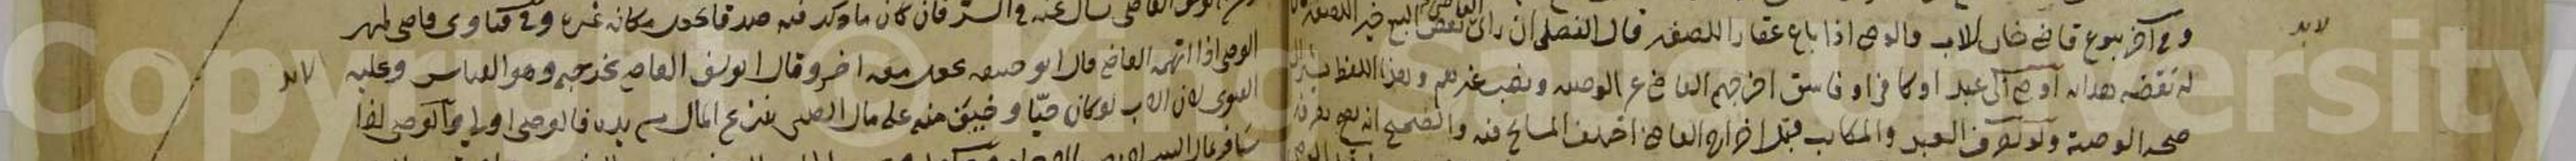 وفي آخر بيوع قاضي خان الاب والوصي اذا باع عقارا للصغير قال الفضلي ان راى نقض البيع خير للصغير
له نقضه هدايه اوصى الى عبد او كافر او فاسق اخرجهم القاضي عن الوصية ونصب غيرهم وهذا اللفظ يشير الى
صحة الوصية ولو تصرف العبد والمكاتب قبل اخراج القاضي اختلف المشايخ فيه والصحيح انه يصح تصرفه
القاضي يسال عنه في السر فان كان ما ذكر فيه صدقا يجعل مكانه غيره وفي فتاوى قاضي ظهير
الوصي اذا اتهمه القاضي قال ابو حنيفة يجعل معه اخر وقال ابو يوسف القاضي يخرجه وهو القياس وعليه
الفتوى لان الاب لو كان حيا وخيف منه على مال الصبي ينزع المال من يده فالوصي اولى والوصي اذا
Copyright © King Saud University